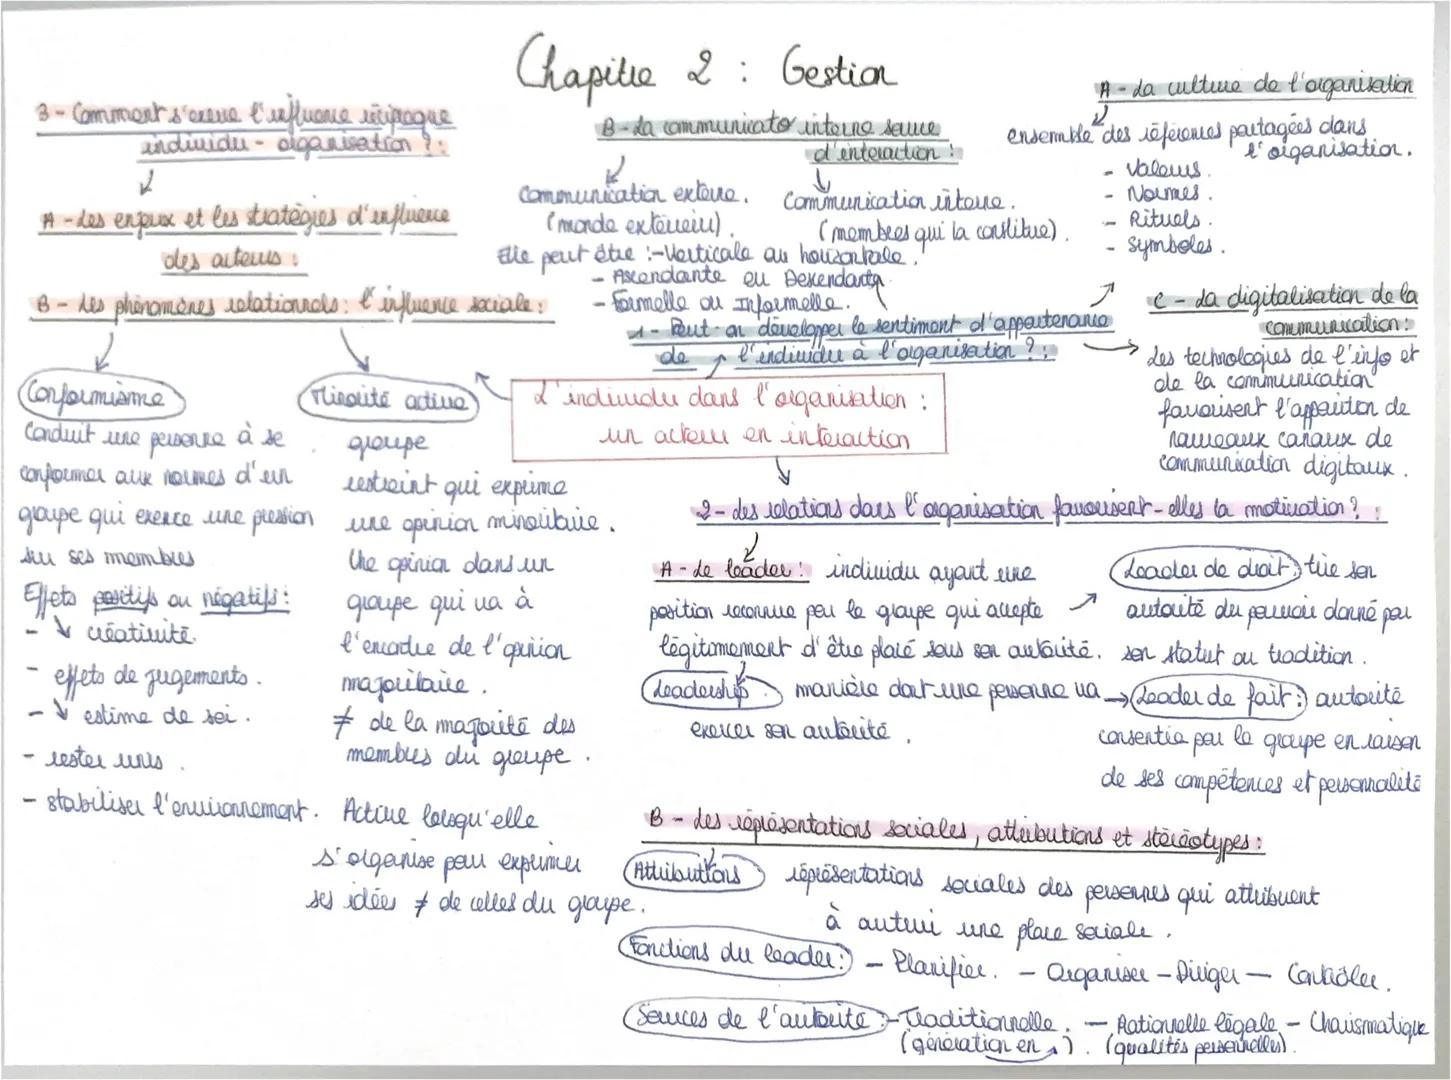 Chapitre 2 : Gestion
3 - Comment s'exerce l'influence réciproque
individu - organisation ? :
A - Les enjeux et les stratégies d'influence
des acteurs :
B - Les phénomènes relationnels : l'influence sociale :
Conformisme
Conduit une personne à se
conformer aux normes d'un
groupe qui exerce une pression
sur ses membres
Effets positifs ou négatifs :
- ↘ créativité.
- effets de jugements.
- ↘ estime de soi.
- rester unis.
- stabiliser l'environnement.
Minorité active
groupe
restreint qui exprime
une opinion minoritaire.
Une opinion dans un
groupe qui va à
l'encadre de l'opinion
majoritaire.
≠ de la majorité des
membres du groupe.
Active lorsqu'elle
s'organise pour exprimer
ses idées ≠ de celles du groupe.
B - La communicato interne source
d'interaction :
Communication externe.
(monde extérieur).
Communication interne.
(membres qui la constitue).
Elle peut être : - Verticale ou horizontale.
- Ascendante ou Descendante
- Formelle ou Informelle.
A - La culture de l'organisation
ensemble des références partagées dans
l'organisation.
- Valeurs.
- Normes.
- Rituels.
- Symboles.
1 - Peut-on développer le sentiment d'appartenance
de l'individu à l'organisation ? :
C - La digitalisation de la
communication :
Les technologies de l'info et
de la communication
favorisent l'apparition de
nouveaux canaux de
communication digitaux.
L'individu dans l'organisation :
un acteur en interaction
2 - Les relations dans l'organisation favorisent-elles la motivation ? :
A - Le leader : individu ayant une
position reconnue par le groupe qui accepte
légitimement d'être placé sous son autorité.
Leadership : manière dont une personne va
exercer son autorité.
Leader de droit : tire son
autorité du pouvoir donné par
son statut ou tradition.
Leader de fait : autorité
consentie par le groupe en raison
de ses compétences et personnalité
B - Les réprésentations sociales, attributions et stéréotypes :
Attributions réprésentations sociales des personnes qui attribuent
à autrui une place sociale.
Fonctions du leader : - Planifier. - Organiser - Diriger - Contrôler.
Sources de l'autorité : - Traditionnelle. - Rationnelle légale - Charismatique
(génération en ↗). (qualités personnelles).